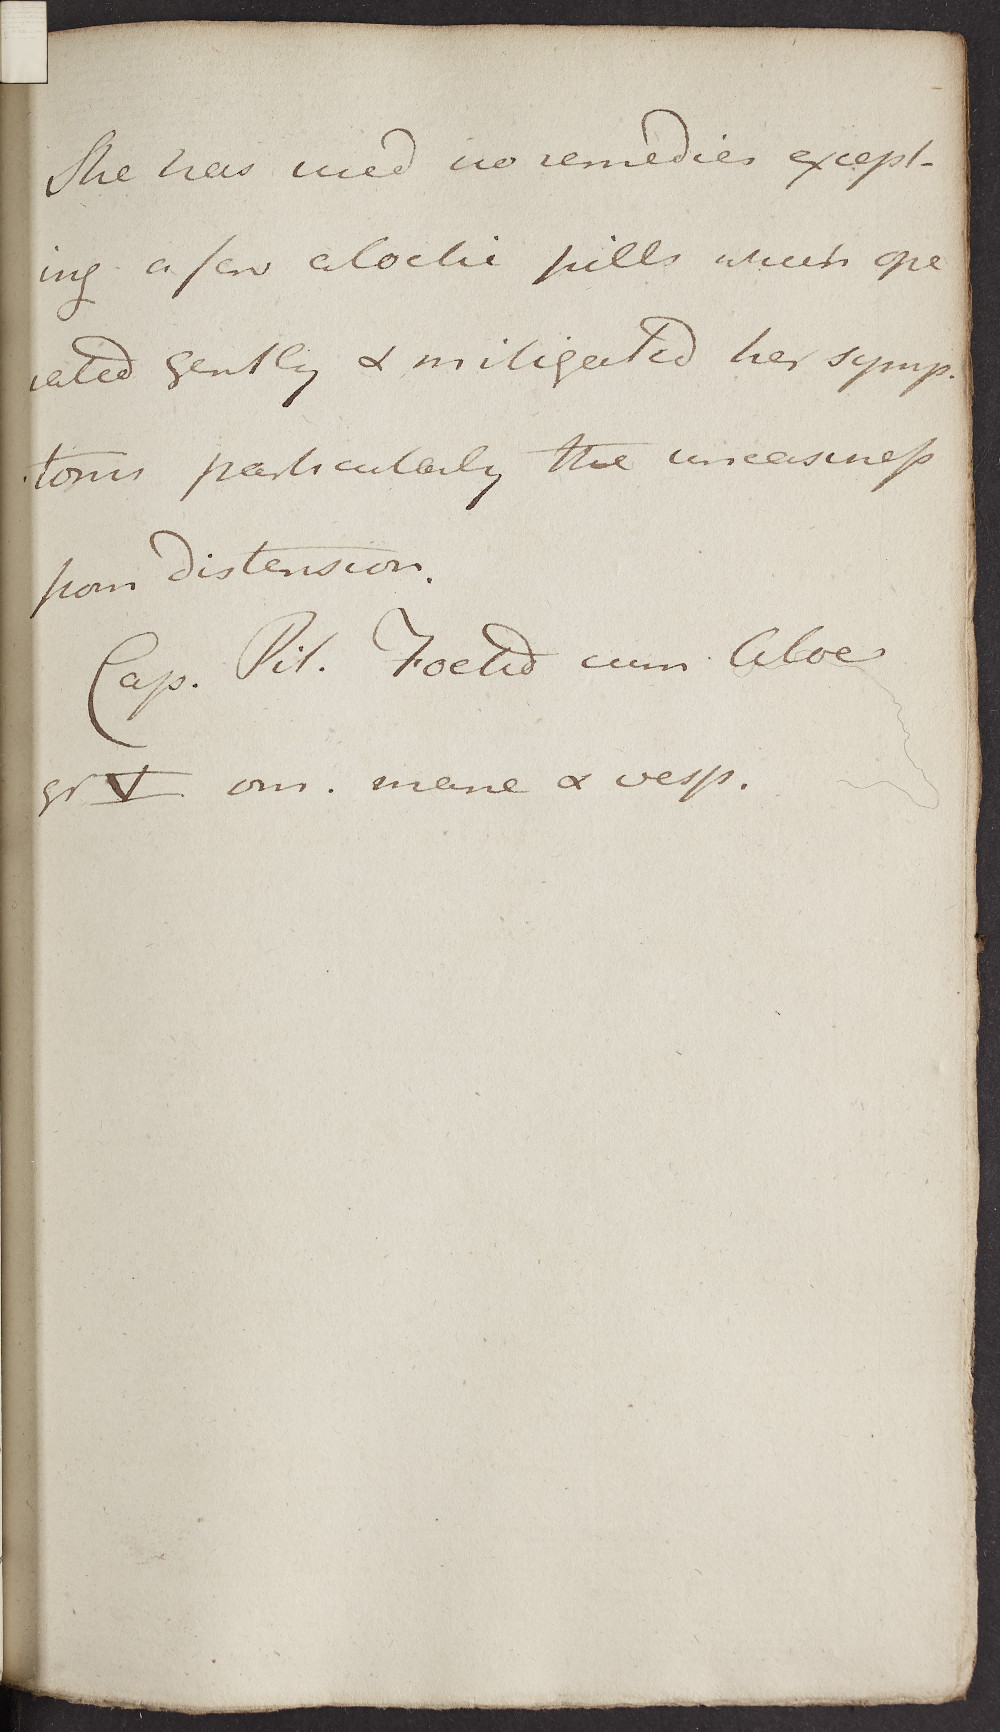 She has used no remedies except-
ing a few aloetic pills which ope
rated gently & mitigated her symp-
toms particularly the uneasiness
from Distension.
Cap. Pil. Foetid cum Aloe
gr V om. mane & vesp.